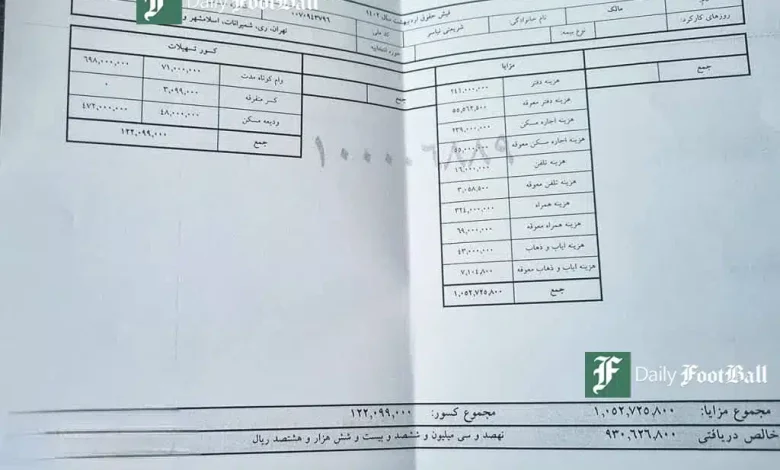 Daily FootBall
فیش حقوق اردیبهشت سال ۱۴۰۲
۰۰۷۰۹۴۳۷۹۶
تهران، ری، شمیرانات، اسلامشهر و
مالک
نام خانوادگی:
شریعتی نیاسر
کد ملی
روزهای کارکرد:
نوع بیمه:
حوزه انتخابیه
جمع
مزایا
هزینه دفتر ۲۴۱,۰۰۰,۰۰۰
هزینه دفتر معوقه ۵۵,۵۶۲,۵۰۰
هزینه اجاره مسکن ۲۳۹,۰۰۰,۰۰۰
هزینه اجاره مسکن معوقه ۴۵,۰۰۰,۰۰۰
هزینه تلفن ۱۶,۰۰۰,۰۰۰
هزینه تلفن معوقه ۳,۰۵۸,۵۰۰
هزینه همراه ۳۲۴,۰۰۰,۰۰۰
هزینه همراه معوقه ۶۹,۰۰۰,۰۰۰
هزینه ایاب و ذهاب ۴۳,۰۰۰,۰۰۰
هزینه ایاب و ذهاب معوقه ۷,۱۰۴,۸۰۰
جمع ۱,۰۵۲,۷۲۵,۸۰۰
جمع
کسور تسهیلات
وام کوتاه مدت ۷۱,۰۰۰,۰۰۰ ۶۹۸,۰۰۰,۰۰۰
کسر متفرقه ۳,۰۹۹,۰۰۰ ۰
ودیعه مسکن ۴۸,۰۰۰,۰۰۰ ۴۷۲,۰۰۰,۰۰۰
جمع ۱۲۲,۰۹۹,۰۰۰
۱۰۰۰۰۶۸۸۹
Daily FootBall
مجموع مزایا: ۱,۰۵۲,۷۲۵,۸۰۰ مجموع کسور: ۱۲۲,۰۹۹,۰۰۰
خالص دریافتی ۹۳۰,۶۲۶,۸۰۰ نهصد و سی میلیون و ششصد و بیست و شش هزار و هشتصد ریال